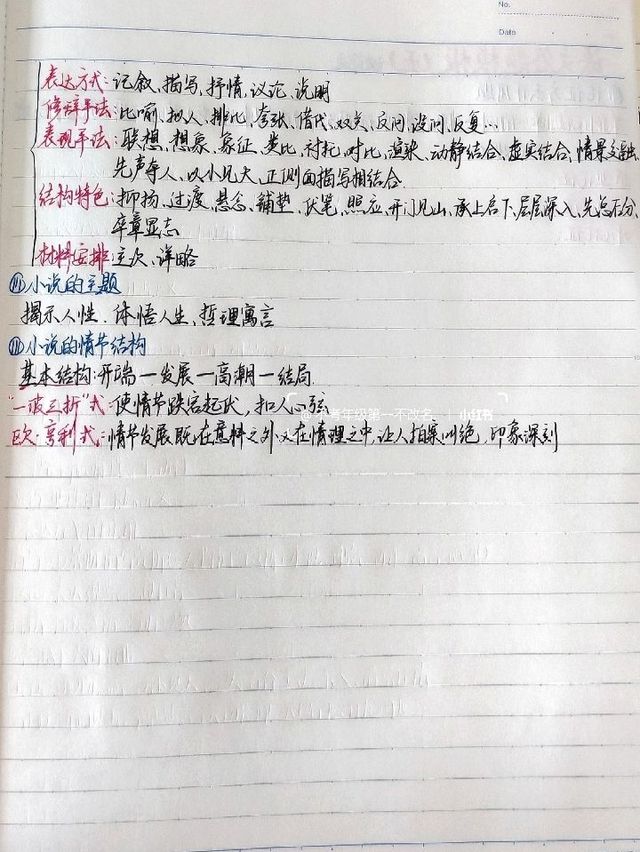 No.
Date
表达方式:记叙、描写、抒情、议论、说明
修辞手法:比喻、拟人、排比、夸张、借代、双关、反问、设问、反复…
表现手法:联想、想象、象征、类比、衬托、对比、渲染、动静结合、虚实结合、情景交融、
先声夺人、以小见大、正侧面描写相结合
结构特色:抑扬、过渡、悬念、铺垫、伏笔、照应、开门见山、承上启下、层层深入、先总后分、
卒章显志
材料安排:主次、详略
小说的主题
揭示人性、体悟人生、哲理寓言
小说的情节结构
基本结构:开端—发展—高潮—结局
"一波三折"式:使情节跌宕起伏,扣人心弦
@不考年级第一不改名 小红书
欧·亨利式:情节发展既在意料之外又在情理之中,让人拍案叫绝,印象深刻